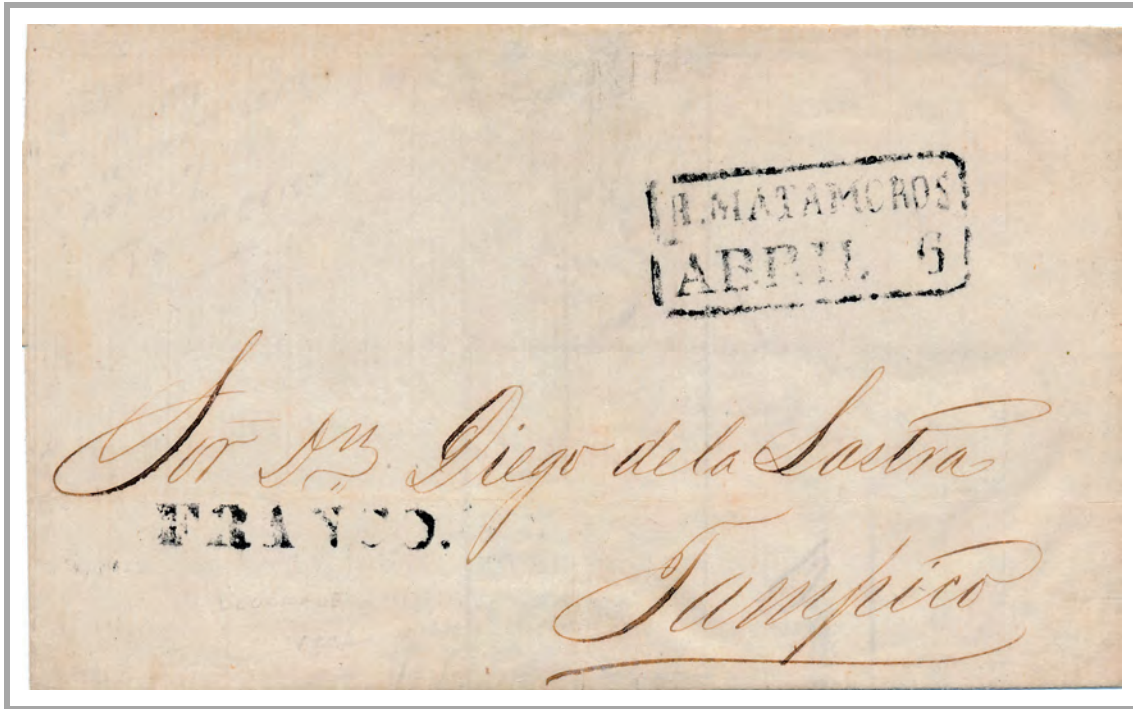 H. MATAMOROS
ABRIL 6
Sor Dn Diego de la Lastra
FRANCO.
Tampico